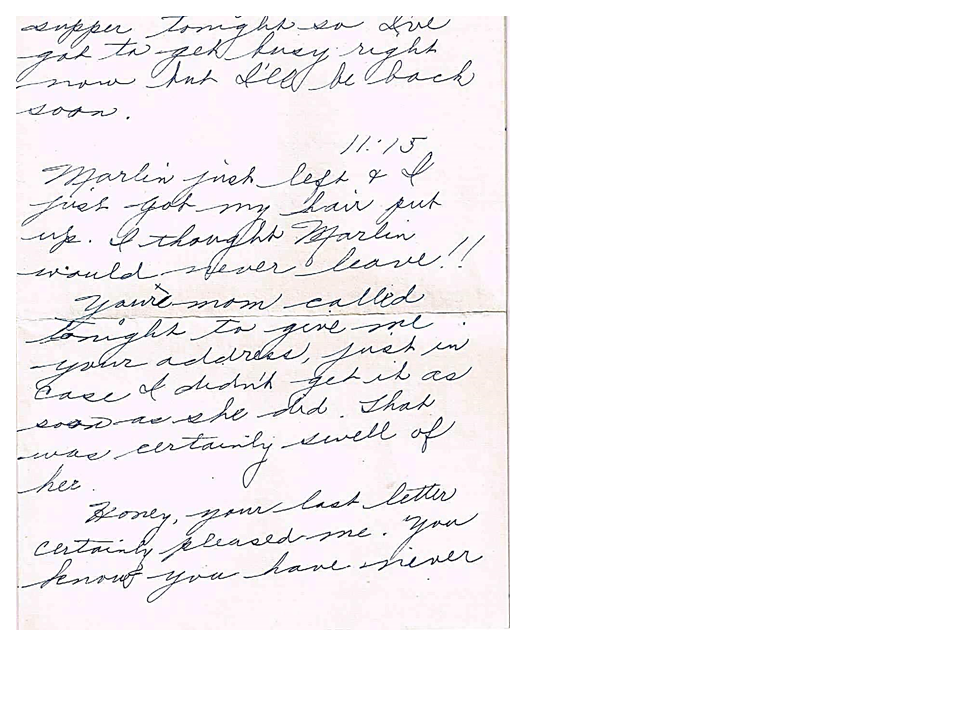 supper tonight so I've
got to get busy right
now but I'll be back
soon.
11:15
Marlin just left & I
just got my hair put
up. I thought Marlin
would never leave!!
Your mom called
tonight to give me
your address, just in
case I didn't get it as
soon as she did. That
was certainly swell of
her.
Honey, your last letter
certainly pleased me. You
know you have never